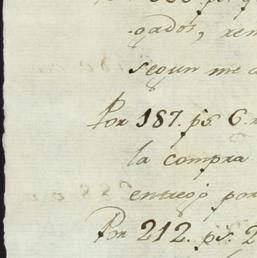 ogados, rem
segun me
Por 187. ps. 6. r
la compra
entregó por
Por 212. ps. 2